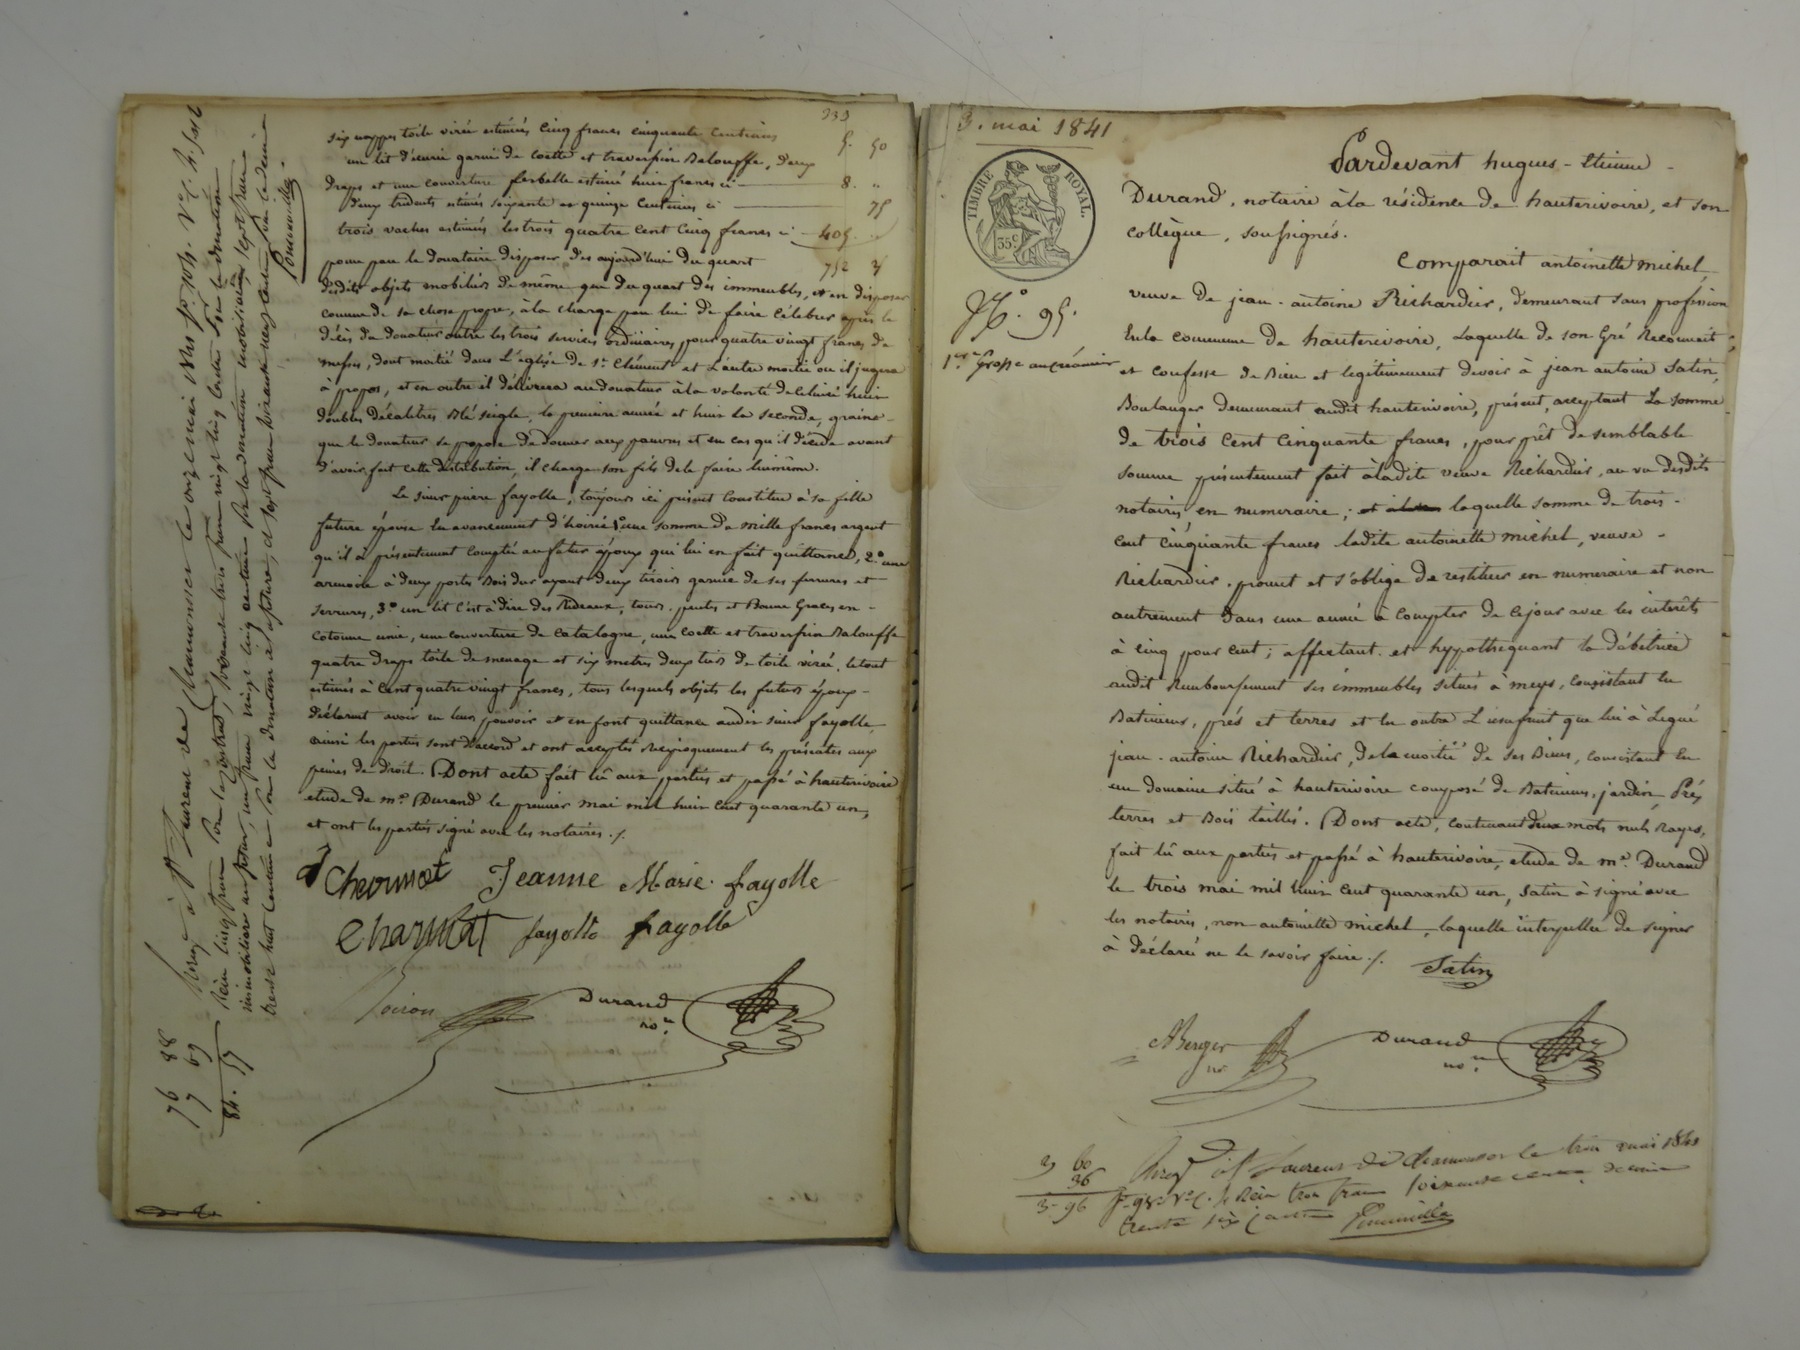 239
six nappes toile virée estimées cinq francs cinquante centimes 5. 50
un lit d'écurie garni de coette et traversin Balouffe, deux
draps et une couverture flerbelle estimé huit francs ci 8. "
deux tridents estimés soixante et quinze centimes ci 75
trois vaches estimées les trois quatre cent cinq francs ci 405. "
pour par le donataire disposer dès aujourd'hui du quart 752
desdits objets mobiliers de même que du quart des immeubles, et en disposer
comme de sa chose propre, à la charge par lui de faire célébrer après le
décès du donateur outre les trois services ordinaires pour quatre vingt francs de
messes, dont moitié dans l'église de St. Clément et l'autre moitié où il jugera
à propos, et en outre il délivrera au donateur à la volonté de celui-ci huit
doubles décalitres Blé seigle, la première année et huit la seconde, graine
que le donateur se propose de donner aux pauvres et en cas qu'il décède avant
d'avoir fait cette distribution, il charge son fils de la faire lui même.
Le sieur pierre fayolle, toujours ici présent constitue à sa fille
future épouse en avancement d'hoirie 1° une somme de mille francs argent
qu'il a présentement comptée au futur époux qui lui en fait quittance, 2° une
armoire à deux portes Bois dur ayant deux tiroirs garnie de ses ferrures et
serrures, 3° un lit c'est à dire des Rideaux, tours, pentes et Bonne Graces en
cotonne unie, une couverture de catalogne, une coette et traversin Balouffe
quatre draps toile de menage et six metres deux tiers de toile virée, le tout
estimés à cent quatre vingt francs, tous lesquels objets les futurs époux
déclarent avoir en leur pouvoir et en font quittance audit sieur fayolle,
ainsi les parties sont d'accord et ont accepté réciproquement les présentes aux
peines de droit. Dont acte fait lû aux parties et passé à hauterivoire
etude de me. Durand le premier mai mil huit cent quarante un,
et ont les parties signé avec les notaires ./.
Charmat Jeanne Marie fayolle
Charmat fayolle fayolle
Durand
nore.
76 88
7 69
84. 57
3. mai 1841
TIMBRE ROYAL.
35c
No. 95.
1ere Grosse au créancier
Pardevant hugues-Etienne
Durand, notaire à la résidence de hauterivoire, et son
collègue, soussignés.
Comparait antoinette michel
veuve de jean-antoine Richardier, demeurant sans profession
en la commune de hauterivoire, Laquelle de son Gré Reconnait
et confesse de Bien et légitimement devoir à jean antoine Satin,
Boulanger demeurant audit hauterivoire, présent, acceptant La somme
de trois cent cinquante francs, pour prêt de semblable
somme présentement fait à ladite veuve Richardier, au vu desdits
notaires, en numeraire; laquelle somme de trois
cent cinquante francs ladite antoinette michel, veuve
Richardier, promet et s'oblige de restituer en numeraire et non
autrement dans une année à compter de ce jour avec les interêts
à cinq pour cent; affectant et hypothequant la débitrice
audit Remboursement ses immeubles situés à meys, consistant en
Batimens, prés et terres et en outre L'usufruit que lui à Legué
jean-antoine Richardier, de la moitié de ses Biens, consistant en
un domaine situé à hauterivoire composé de Batimens, jardin, Prés,
terres et Bois taillis. Dont acte, contenant deux mots nuls rayés,
fait lû aux parties et passé à hauterivoire, etude de me. Durand
le trois mai mil huit cent quarante un, Satin à signé avec
les notaires, non antoinette michel, laquelle interpellée de signer
à déclaré ne le savoir faire ./. Satin
Berger Durand
no. nore.
3 60
36
3-96